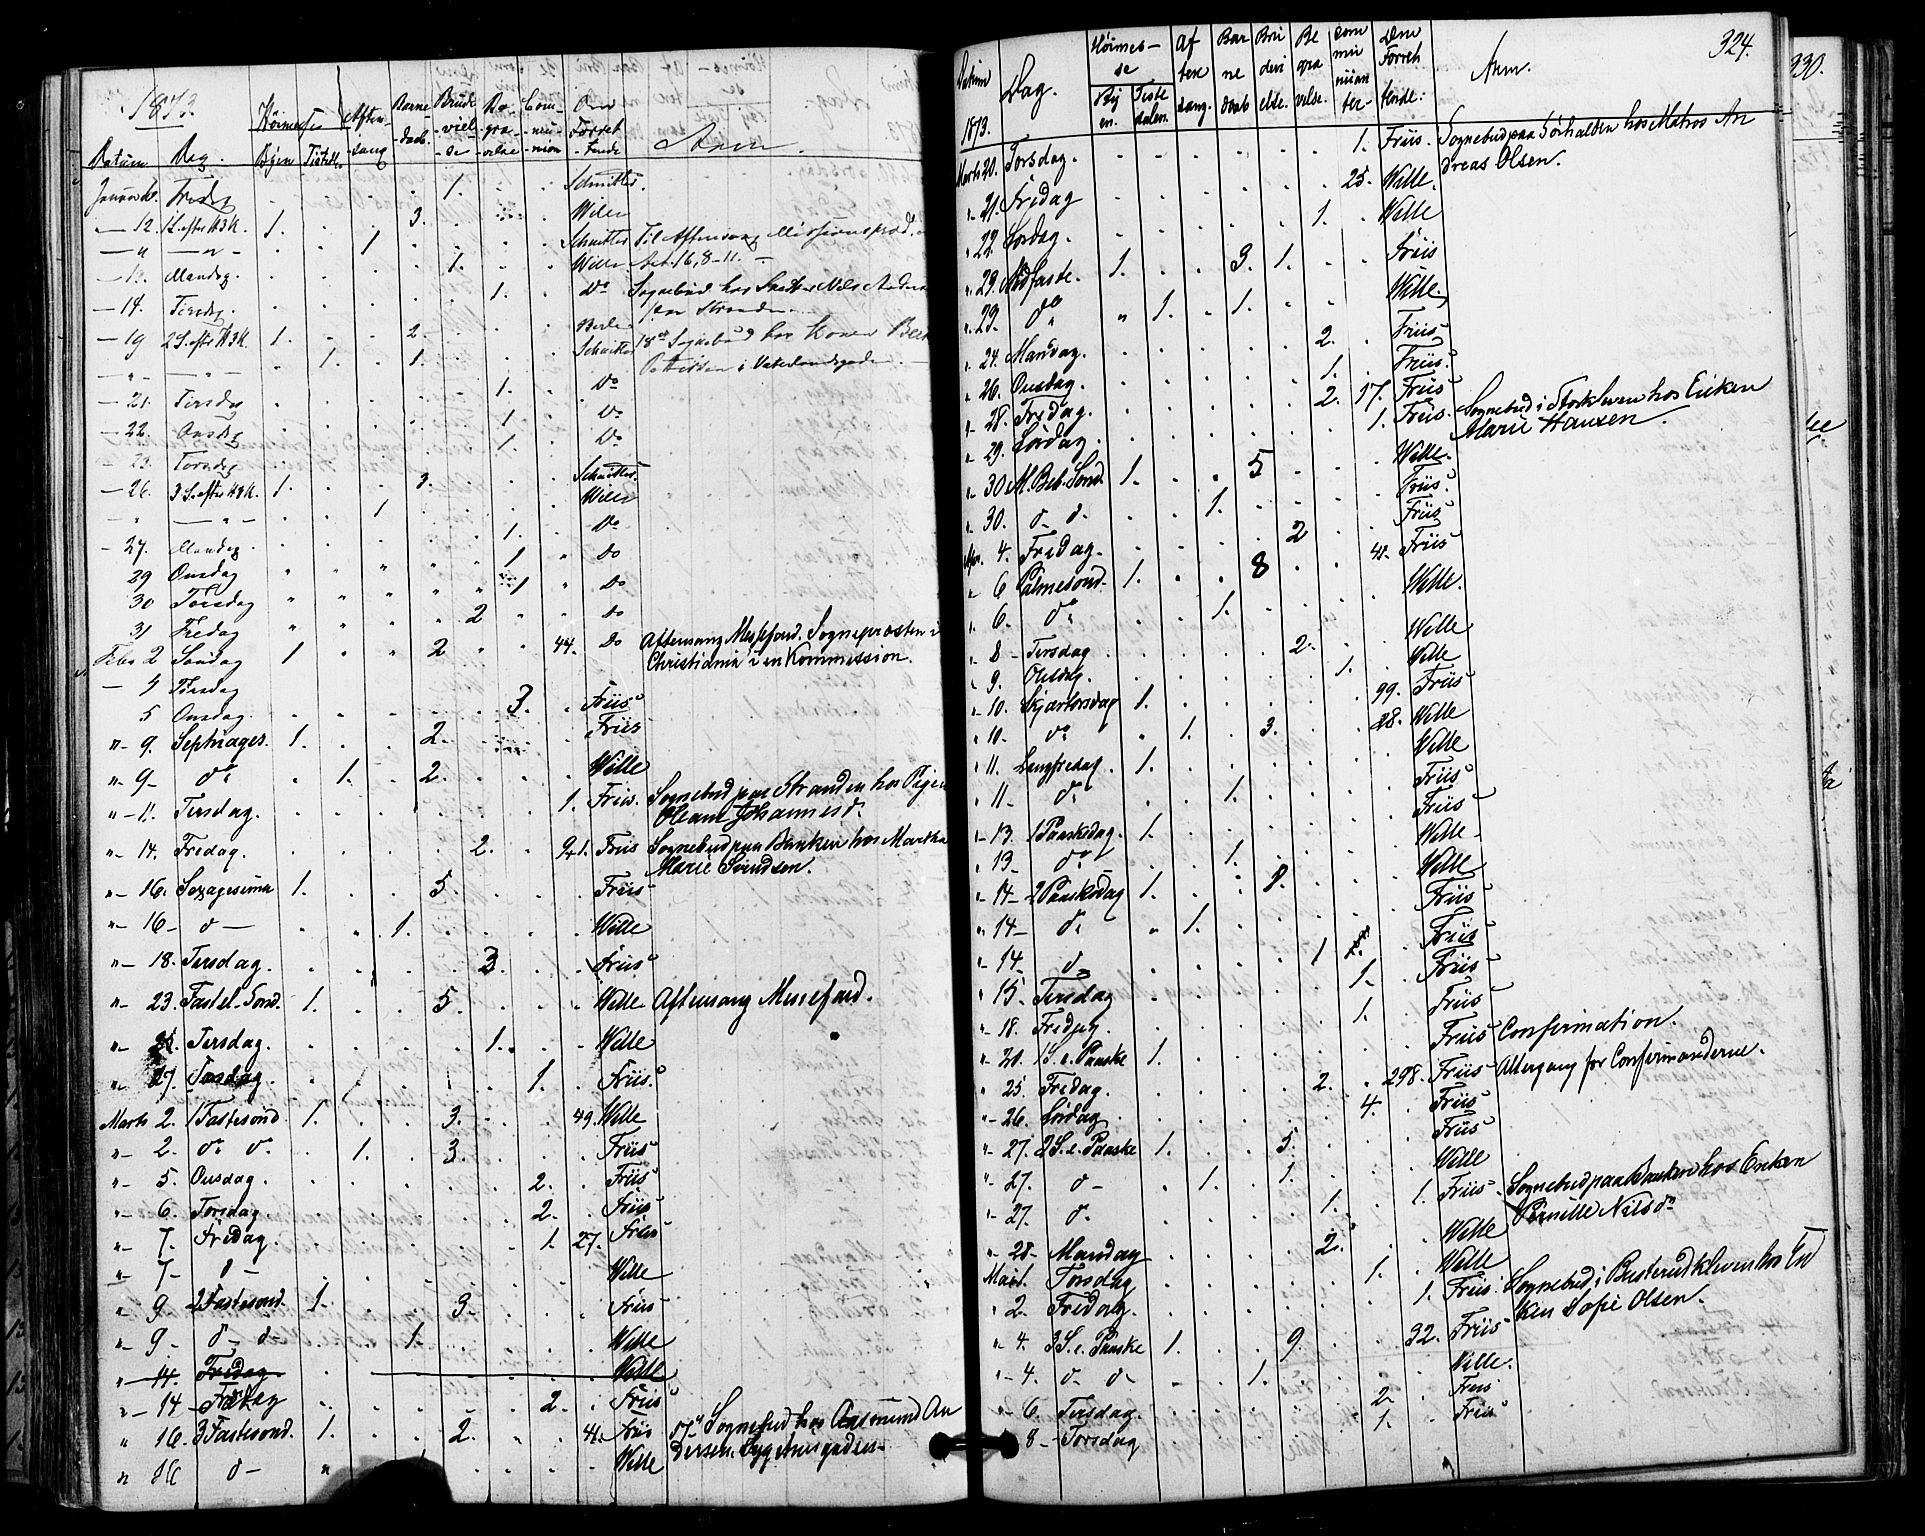 1873.
Datum Dag. Høimesse Byen Tistedl. Aftensang Barnedaab. Brudevielse Begravelse Communion Den Forrettende Anm.
Januar 10. Fredag . . . . 1. . . Schnitler.
— 12. 1 S. efter H3K. 1. . . 3. . . . Wille
— " — " — . . 1 . . . . Schnitler Til Aftensang Missionspræd.
— 13. Mandag. . . . . 1. . . Wille Act. 16, 8-11. —
— 14. Tirsdag. . . . . . 1. . Do Sognebud hos Nils
paa Stranden.
— 19 2 S. efter H3K. 1. . . 2. . . . 18de Sognebud hos Konen
— " — " — . 1. . 1. . . . Schnitler i Vaterlandsgaden. —
— 21. Tirsdag . . . . . 1. . Do
— 22. Onsdag . . . . . 1. . Do
— 23. Torsdag . . . . . 1. . Do
— 26. 3 S. efter H3K. 1. . . 3. . . . Schnitler.
— " — " — . . 1 . . . . Wille
— 27. Mandag . . . . . 1. . Do
29 Onsdag " " " " " 1 " Do
30 Torsdag " " " " " 1 " Do
31 Fredag " " " " 2 " " Do
Febr 2 Søndag 1 " " 2 " " 44. Do Aftensang Messefald. Sognepræsten i
Christiania i en Kommission.
— 4 Tirsdag
5 Onsdag . . . . . 3. . Friis
"- 9. Septuages. 1. . . 2. . . . Friis
"- 9- do . 1. . 2. . . . Wille
"- 11. Tirsdag. . . . . . . 1. Friis. Sognebud paa Stranden hos Pigen
Oleane Johannesd.
"- 14. Fredag. . . . . 2. . 9+1. Friis Sognebud paa Banken hos Martha
Marie Svendsen.
"- 16. Sexagesima 1. . . 5. . . . Friis
"- 16- d— . . 1. . . . . Wille
"- 18. Tirsdag. . . . . 3. . . Friis
"- 23. Fastel. Sønd. 1. . . 5. . . . Wille Aftensang Messefald.
"- 25. Tirsdag. . . . . 1. . . Wille
"- 27. Torsdag. . . . . . 1. . Friis.
Marts 2. 1 Fastesønd. 1. . . 3. . . 49. Wille
"- 2. do do . 1. . 3. . . . Friis
"- 5. Onsdag. . . . . . 2. . Friis
"- 6. Torsdag. . . . . . 2. . Friis
"- 7. Fredag. . . . . . 1. 27. Friis
"- 7- d— . . . . . . . Wille
" 9 2 Fastesønd. 1. . . 3. . . . Friis
"- 9- d- d- . . 1. . . . . Wille
"- 14. Fredag Wille
"- 14 Fredag . . . . . 2. . Friis
" 16. 3 Fastesønd. 1. . . 2. . . 41. Friis 17de Sognebud hos Aasmund An
" 16 d— " . . . . Wille dersen, Sygehusgaden

324.
Datum Dag. Høimesse Byen. Tistedalen. Aftensang. Barnedaab Brudevielse. Begravelse. Communicanter- Den Forrettende: Anm.
1873.
Marts 20. Torsdag. . . . . . . 1. Friis. Sognebud paa Sørhalden hos Matros An
dreas Olsen.
"- 21. Fredag . . . . . . 25. Wille.
" 22. Lørdag. . . . . . 1. . Wille
" 23. Midfaste. 1. . . 3. 1. . . Friis
" 23. do " 1. . 1. . . . Wille.
" 24. Mandag. . . . . . 2. . Friis
" 26. Onsdag. . . . . . 1. . Friis.
"- 28. Fredag. . . . . . 2. 17. Friis
" 29. Lørdag. . . . . . . 1. Friis. Sognebud i Storkleven hos Enken
Marie Hansen.
"- 30 M. Beb. Sønd. 1. . . 5 . . . Wille.
" 30. d- d. . . 1. . . . . Friis.
Apr. 4. Fredag. . . . . 2 . . Friis
"- 6 Palmesønd. 1. . . 8 . . 41. Friis
" 6. do . . 1. . . . . Wille.
" 8- Tirsdag . . . . 2. . . Wille
" 9. Onsdag. . . . . . 1. . Wille
"- 10. Skjærtorsdag 1. . . . . . 99. Friis
" 10. do " 1. . 3. . . 28. Wille
" 11. Langfredag. 1. . . . . . . Wille
" 11- d. . . 1. . . . . Friis
"- 13. 1 Paaskedag. 1. . . . . . . Friis
" 13- do . . 1. . . . . Wille.
"- 14- 2 Paaskedag 1. . . 8. . . . Wille
" 14- d. " 1. . . . . . Friis
"- 14- d- . . . . 1 . . Friis
"- 15. Tirsdag . . . . . 1. . Friis
"- 18. Fredag. . . . . . 1. . Friis
"- 20. 1 S. e. Paaske 1. . . . . . . Friis Confirmation.
" 25 Fredag. . . . . . 2. 298. Friis Altergang for Confirmanderne.
"- 26. Lørdag . . . . . 4. . Friis
"- 27. 2 S. e. Paaske 1. . . 5. . . . Friis
"- 27. d- . 1. . 1. . . . Wille
"- 27. d. . . . . . 1. 1. Friis Sognebud paa Banken hos Enken
Pernille Nilsdr
" 28- Mandag . . . . . 2. . Wille
Mai 1. Torsdag . . . . . 1. . Wille
" 2. Fredag. . . . . . . 1. Friis Sognebud i Busterudkleven hos En
ken Sofie Olsen.
" 4. 3 S. e. Paaske 1. . . 9. . . 32. Friis
"- 4. d- d- . . 1. . . . . Wille.
"- 6. Tirsdag. . . . . . 2 . Friis
8- Torsdag . . . . . 1. . Friis
330.